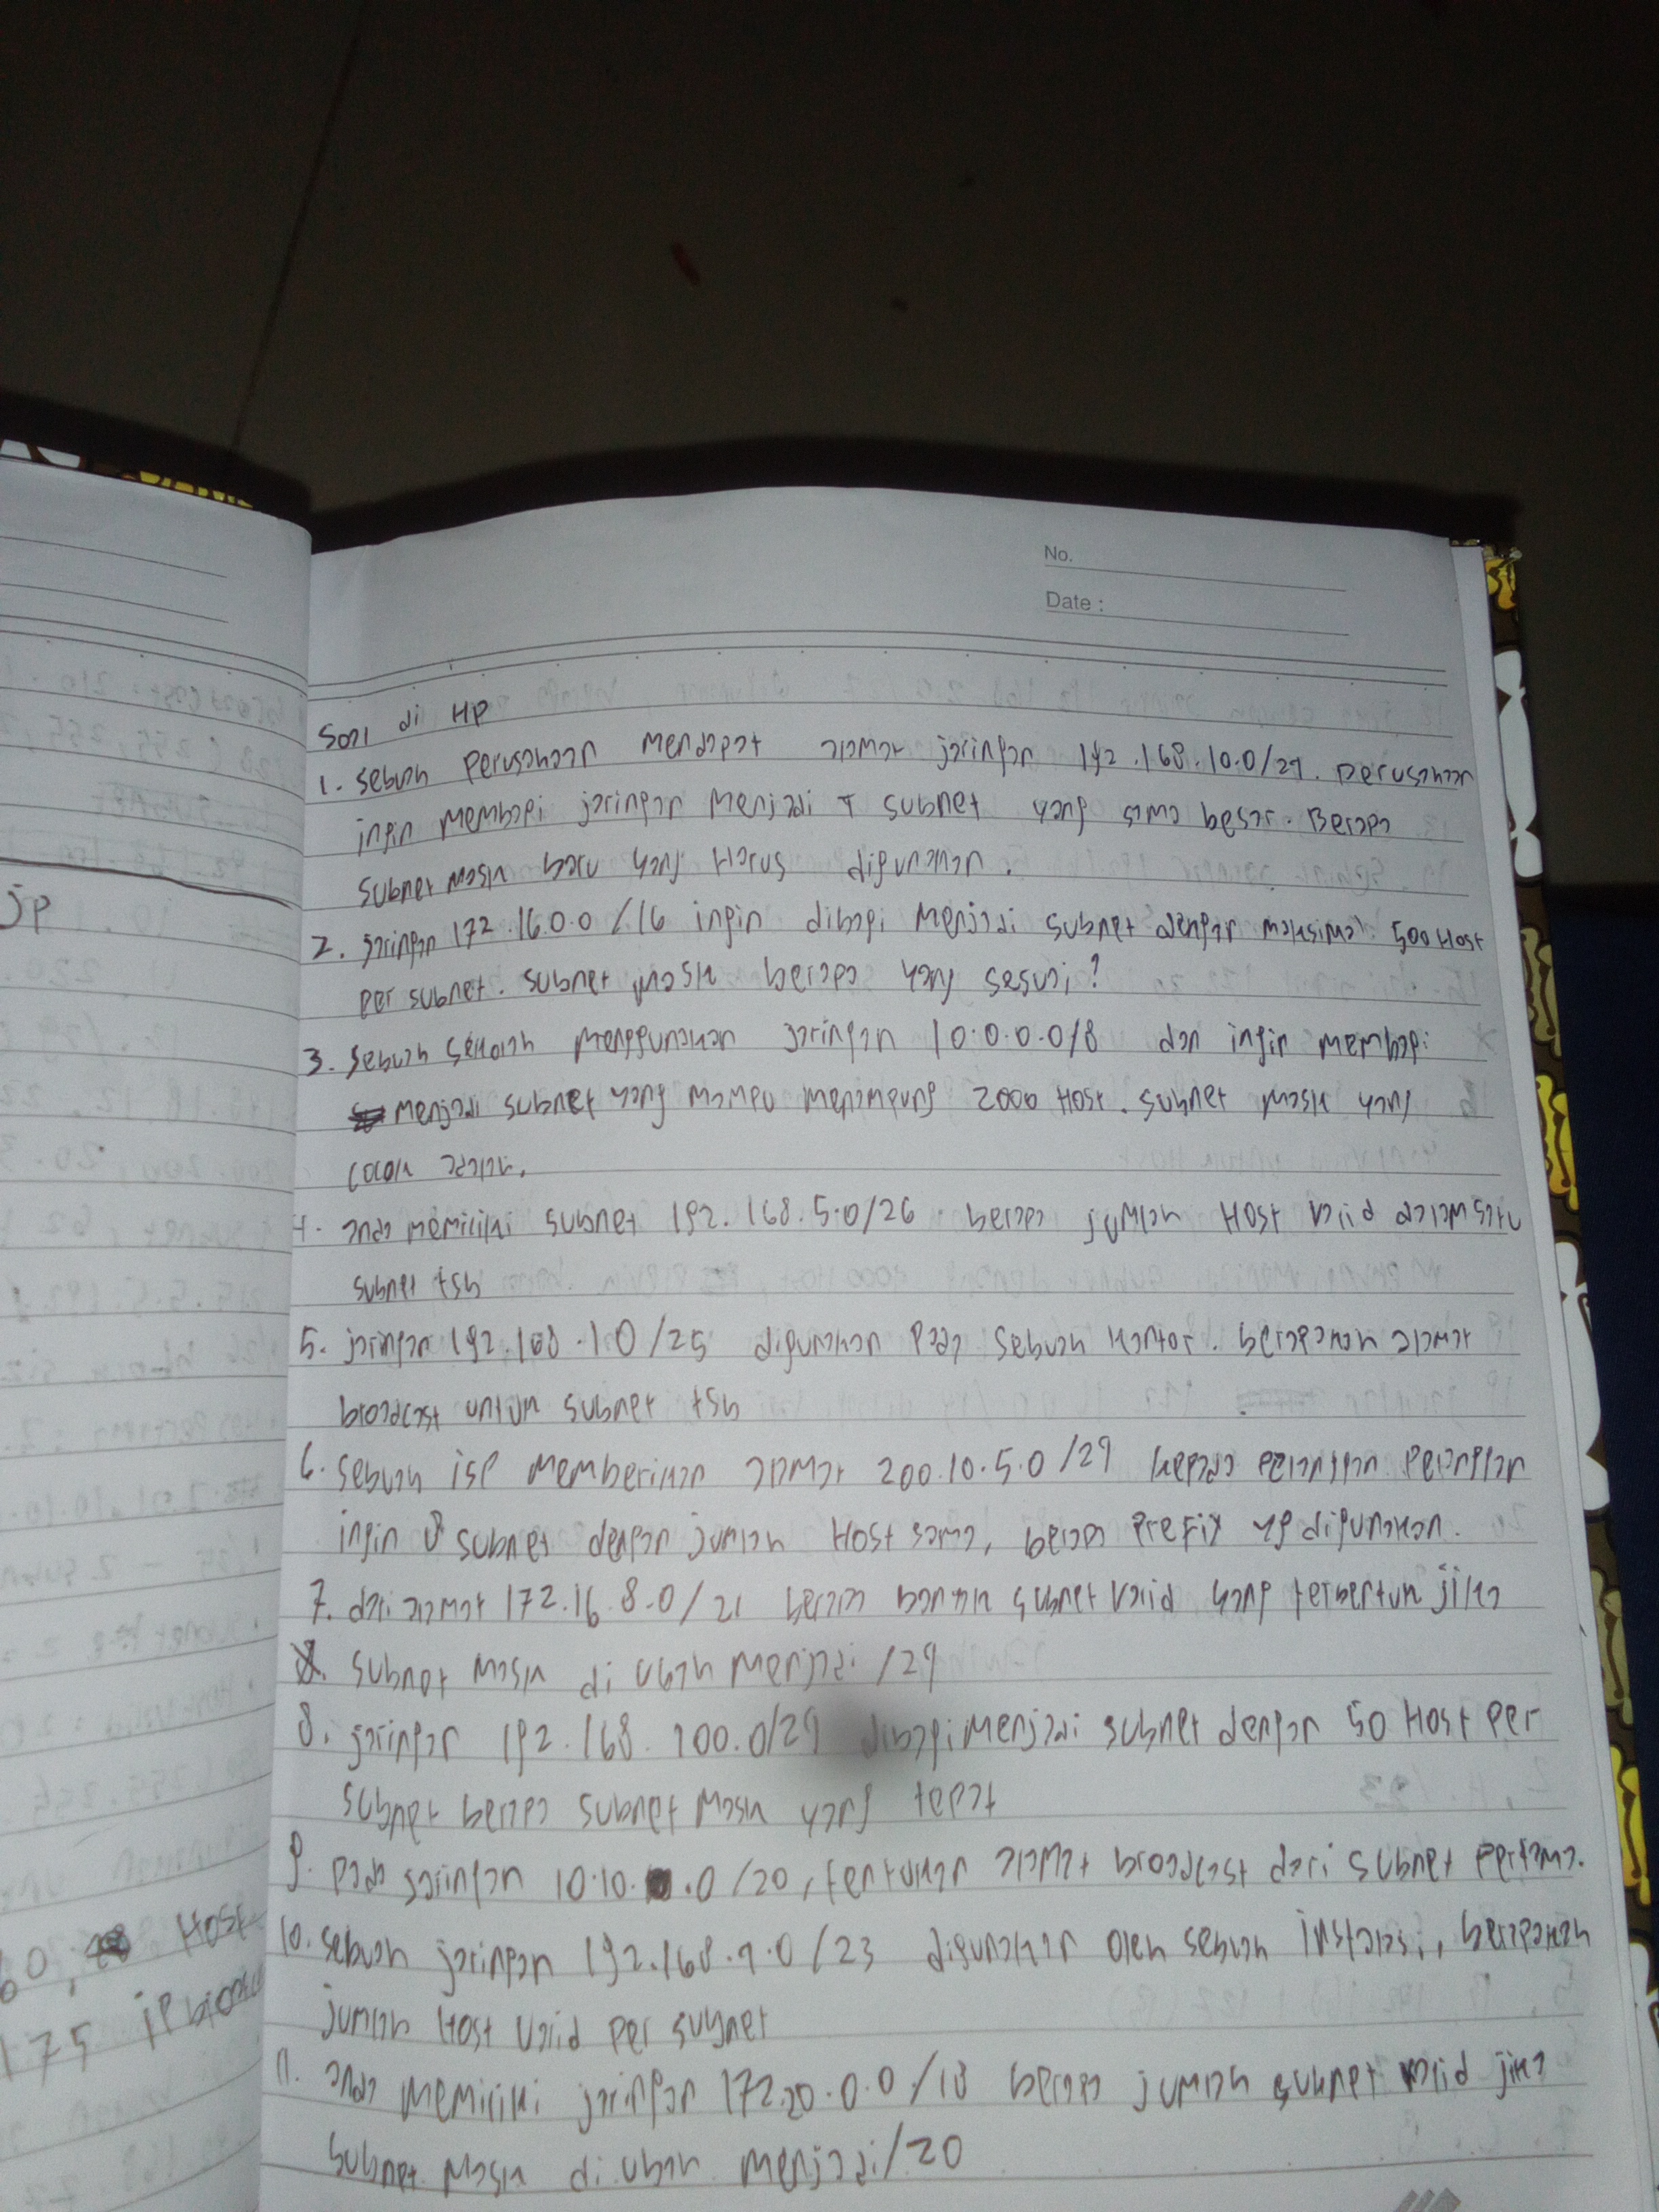 No.
Date :
Soal di HP
1. Sebuah Perusahaan Mendapat alamat jaringan 192.168.10.0/24. Perusahaan
ingin Membagi jaringan Menjadi 4 subnet yang sama besar. Berapa
subnet mask baru yang Harus digunakan.
2. Jaringan 172.16.0.0/16 ingin dibagi Menjadi subnet dengan maksimal 500 Host
per subnet. subnet mask berapa yang sesuai?
3. Sebuah sekolah Menggunakan Jaringan 10.0.0.0/8 dan ingin membagi
menjadi subnet yang mampu menampung 2000 Host. subnet mask yang
cocok adalah.
4. anda memiliki subnet 192.168.5.0/26 berapa jumlah Host valid dalam satu
subnet tsb
5. jaringan 192.168.1.0/25 digunakan Pada sebuah kantor. berapakah alamat
broadcast untuk subnet tsb
6. Sebuah isp memberikan alamat 200.10.5.0/24 kepada pelanggan. Pelanggan
ingin 8 subnet dengan jumlah Host sama, berapa Prefix yg digunakan.
7. dari alamat 172.16.8.0/21 berapa banyak subnet valid yang terbentuk jika
subnet Mask di ubah menjadi /24
8. jaringan 192.168.100.0/24 dibagi menjadi subnet dengan 50 Host per
subnet berapa subnet mask yang tepat
9. Pada Jaringan 10.10. .0/20, tentukan alamat broadcast dari subnet pertama.
10. sebuah jaringan 192.168.4.0/23 digunakan oleh sebuah instalasi, berapakah
jumlah Host valid per subnet
11. anda memiliki jaringan 172.20.0.0/18 berapa jumlah subnet valid jika
subnet Mask di ubah menjadi /20
jp
60, Host
175 ip